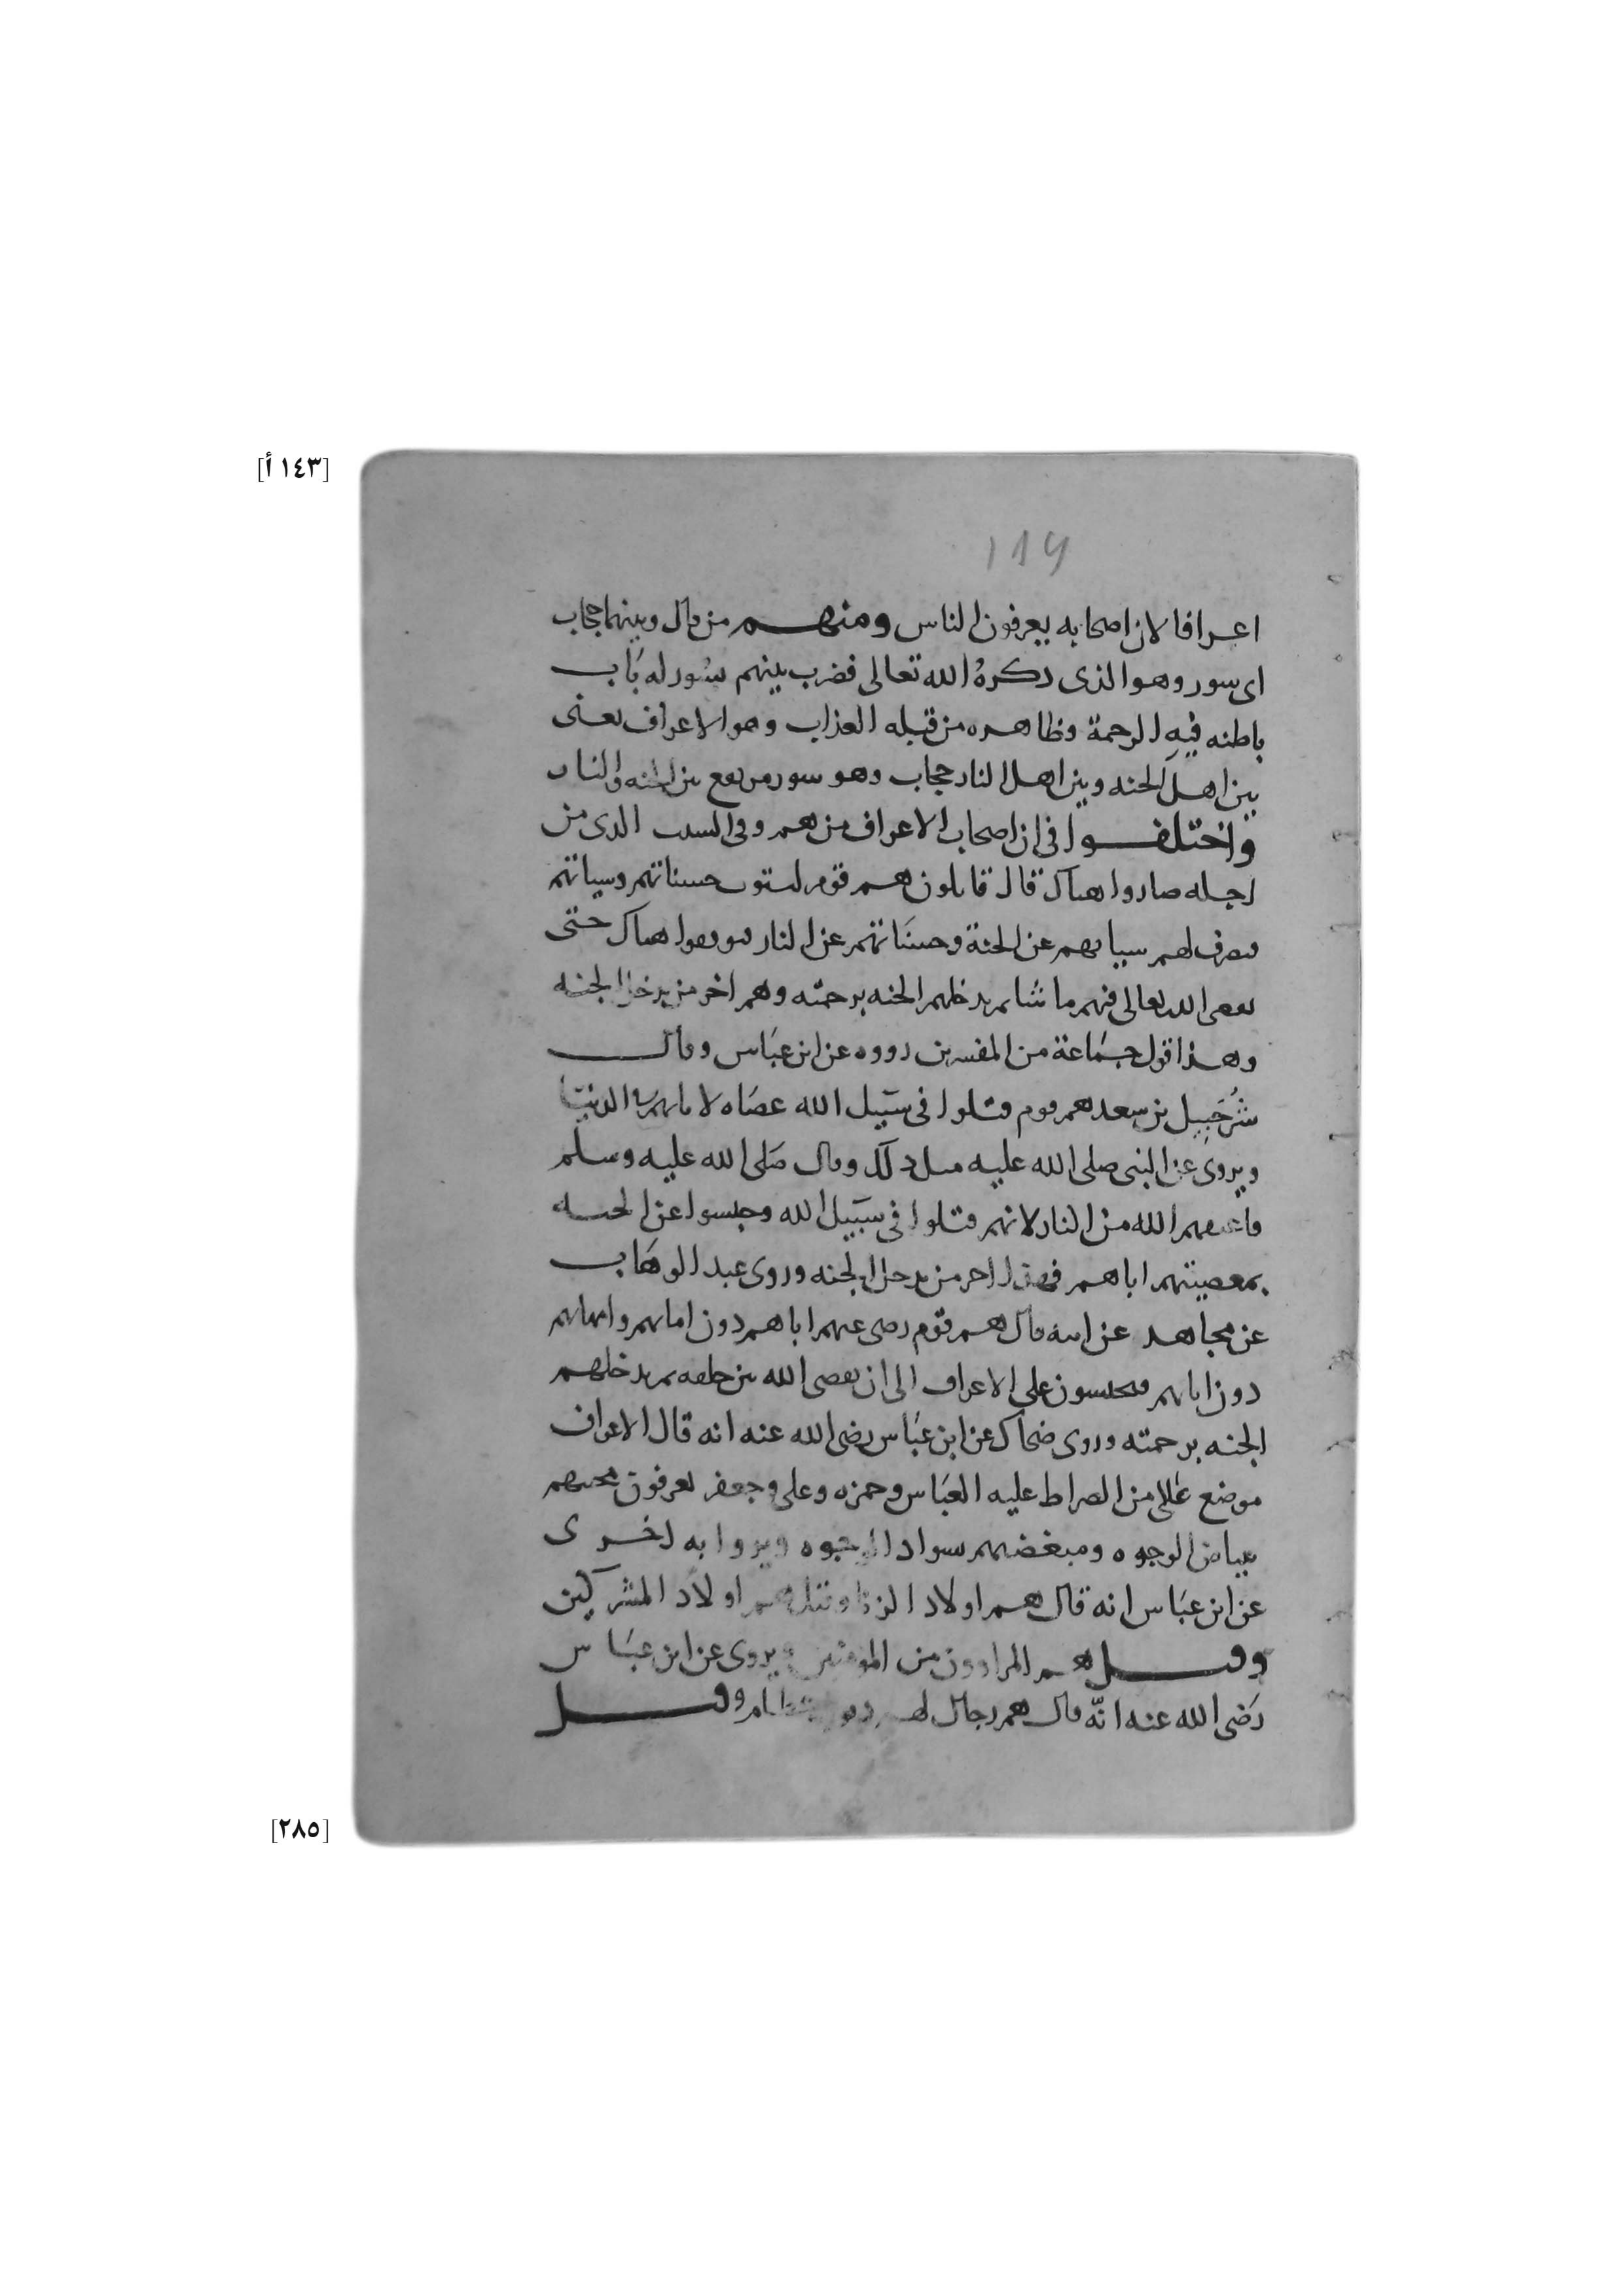 [١٤٣ أ]
١١٩
اعرافا لان اصحابه يعرفون الناس ومنهم من قال وبينهما حجاب
اى سور وهو الذى ذكره الله تعالى فضرب بينهم بسُور له بَاب
باطنه فيه الرحمة وظاهره من قبله العذاب وهو الاعراف يعنى
بين اهل الجنه وبين اهل النار حجاب وهو سور مرتفع بين الجنه والنار
واختلفوا فى ان اصحاب الاعراف من هم وفى السبب الذى من
اجله صاروا هناك قال قايلون هم قوم استوت حسناتهم وسياتهم
سياتهم عن الجنة وحسنَاتهم عن النار فوقفوا هناك حتى
يقضى الله تعالى فيهم ما شا ثم يدخلهم الجنه برحمته وهم اخر من يدخل الجنه
وهذا قول جمَاعة من المفسرين رووه عن ابن عبَاس وقال
شُرَحبيل بن سعد هم قوم قتلوا فى سَبيل الله عصَاه لابايهم فى الدنيَا
ويروى عن النبى صلى الله عليه مثل ذلك وقال صَلى الله عليه وسلم
فاعتقهم الله من النار لانهم قتلوا فى سبَيل الله وحبسوا عن الجنه
بمعصيتهم اباهم فهم اخر من يدخل الجنه وروى عبد الوهَاب
عن مجاهد عن ابيه قال هم قوم رضى عنهم اباهم دون امهاتهم وامهاتهم
دون ابايهم فيحبسون على الاعراف الى ان يقضى الله بين خلقه ثم يدخلهم
الجنه برحمته وروى ضحاك عن ابن عبَاس رضى الله عنه انه قال الاعراف
موضع عَالى من الصراط عليه العبَاس وحمزه وعلى وجعفر يعرفون محبيهم
ببياض الوجوه ومبغضيهم سواد الوجوه ويروا به اخرى
عن ابن عبَاس انه قال هم اولاد الزنا وقيل هم اولاَد المشركين
وقيل هم المراوون من المومنين ويروى عن ابن عبَاس
رَضى الله عنه انّه قال هم رجال لهم وقيل
[٢٨٥]